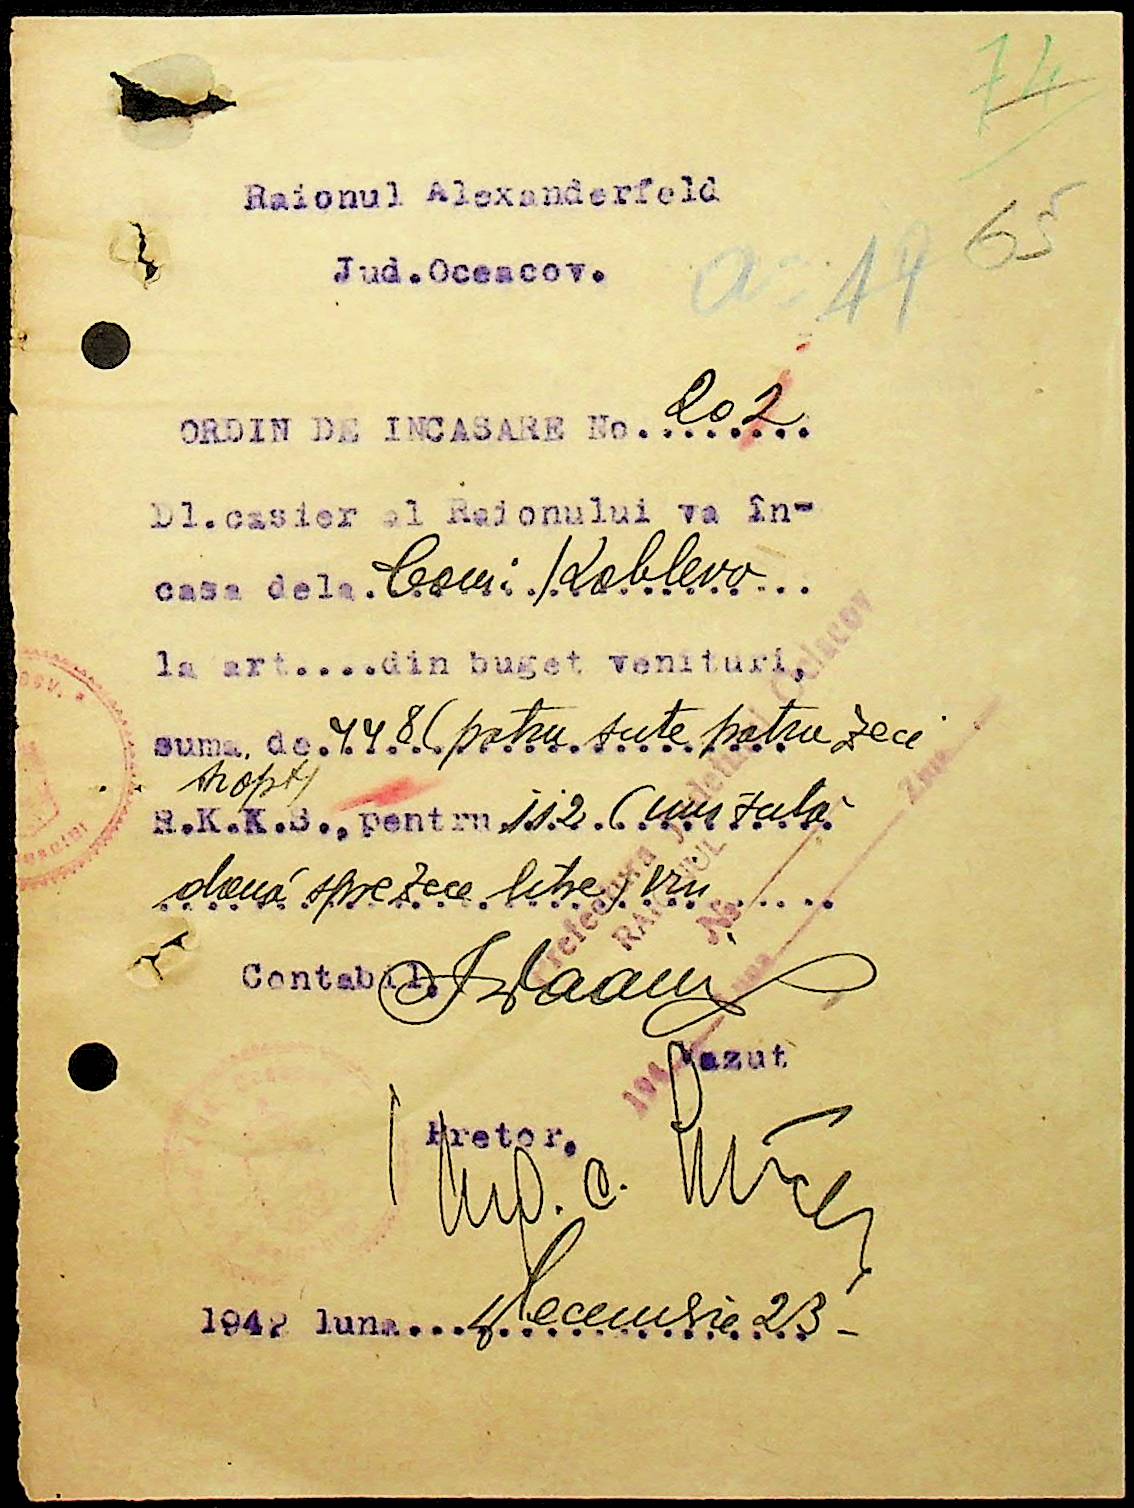 74
65
a: 19
Raionul Alexanderfeld
Jud.Oceacov.
ORDIN DE INCASARE No. 202
Dl.casier al Raionului va în-
casa dela. Com: Koblevo
la art....din buget venituri,
suma de. 448 (patru sute patru zeci
și opt)
R.K.K.S., pentru 112 (una sută
două spre zece litre) vin
Prefectura Judetului Oceacov
RAIONUL
No. Ziua
Luna
194
Contabil,
Vazut
Pretor,
1942 luna... Decembrie 23-